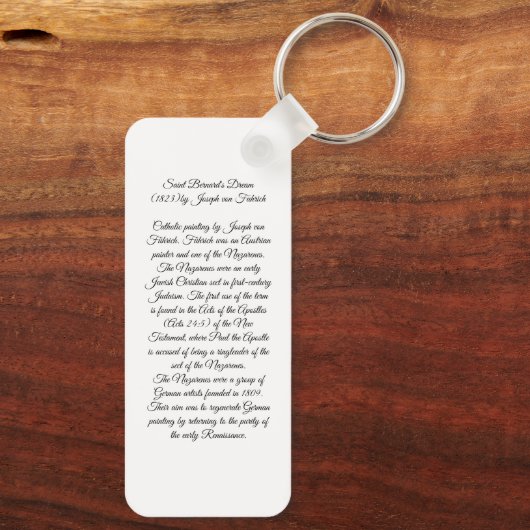 Saint Bernard's Dream
(1823)by Joseph von Führich
Catholic painting by Joseph von
Führich. Führich was an Austrian
painter and one of the Nazarenes.
The Nazarenes were an early
Jewish Christian sect in first-century
Judaism. The first use of the term
is found in the Acts of the Apostles
(Acts 24:5) of the New
Testament, where Paul the Apostle
is accused of being a ringleader of the
sect of the Nazarenes.
The Nazarenes were a group of
German artists founded in 1809.
Their aim was to regenerate German
painting by returning to the purity of
the early Renaissance.